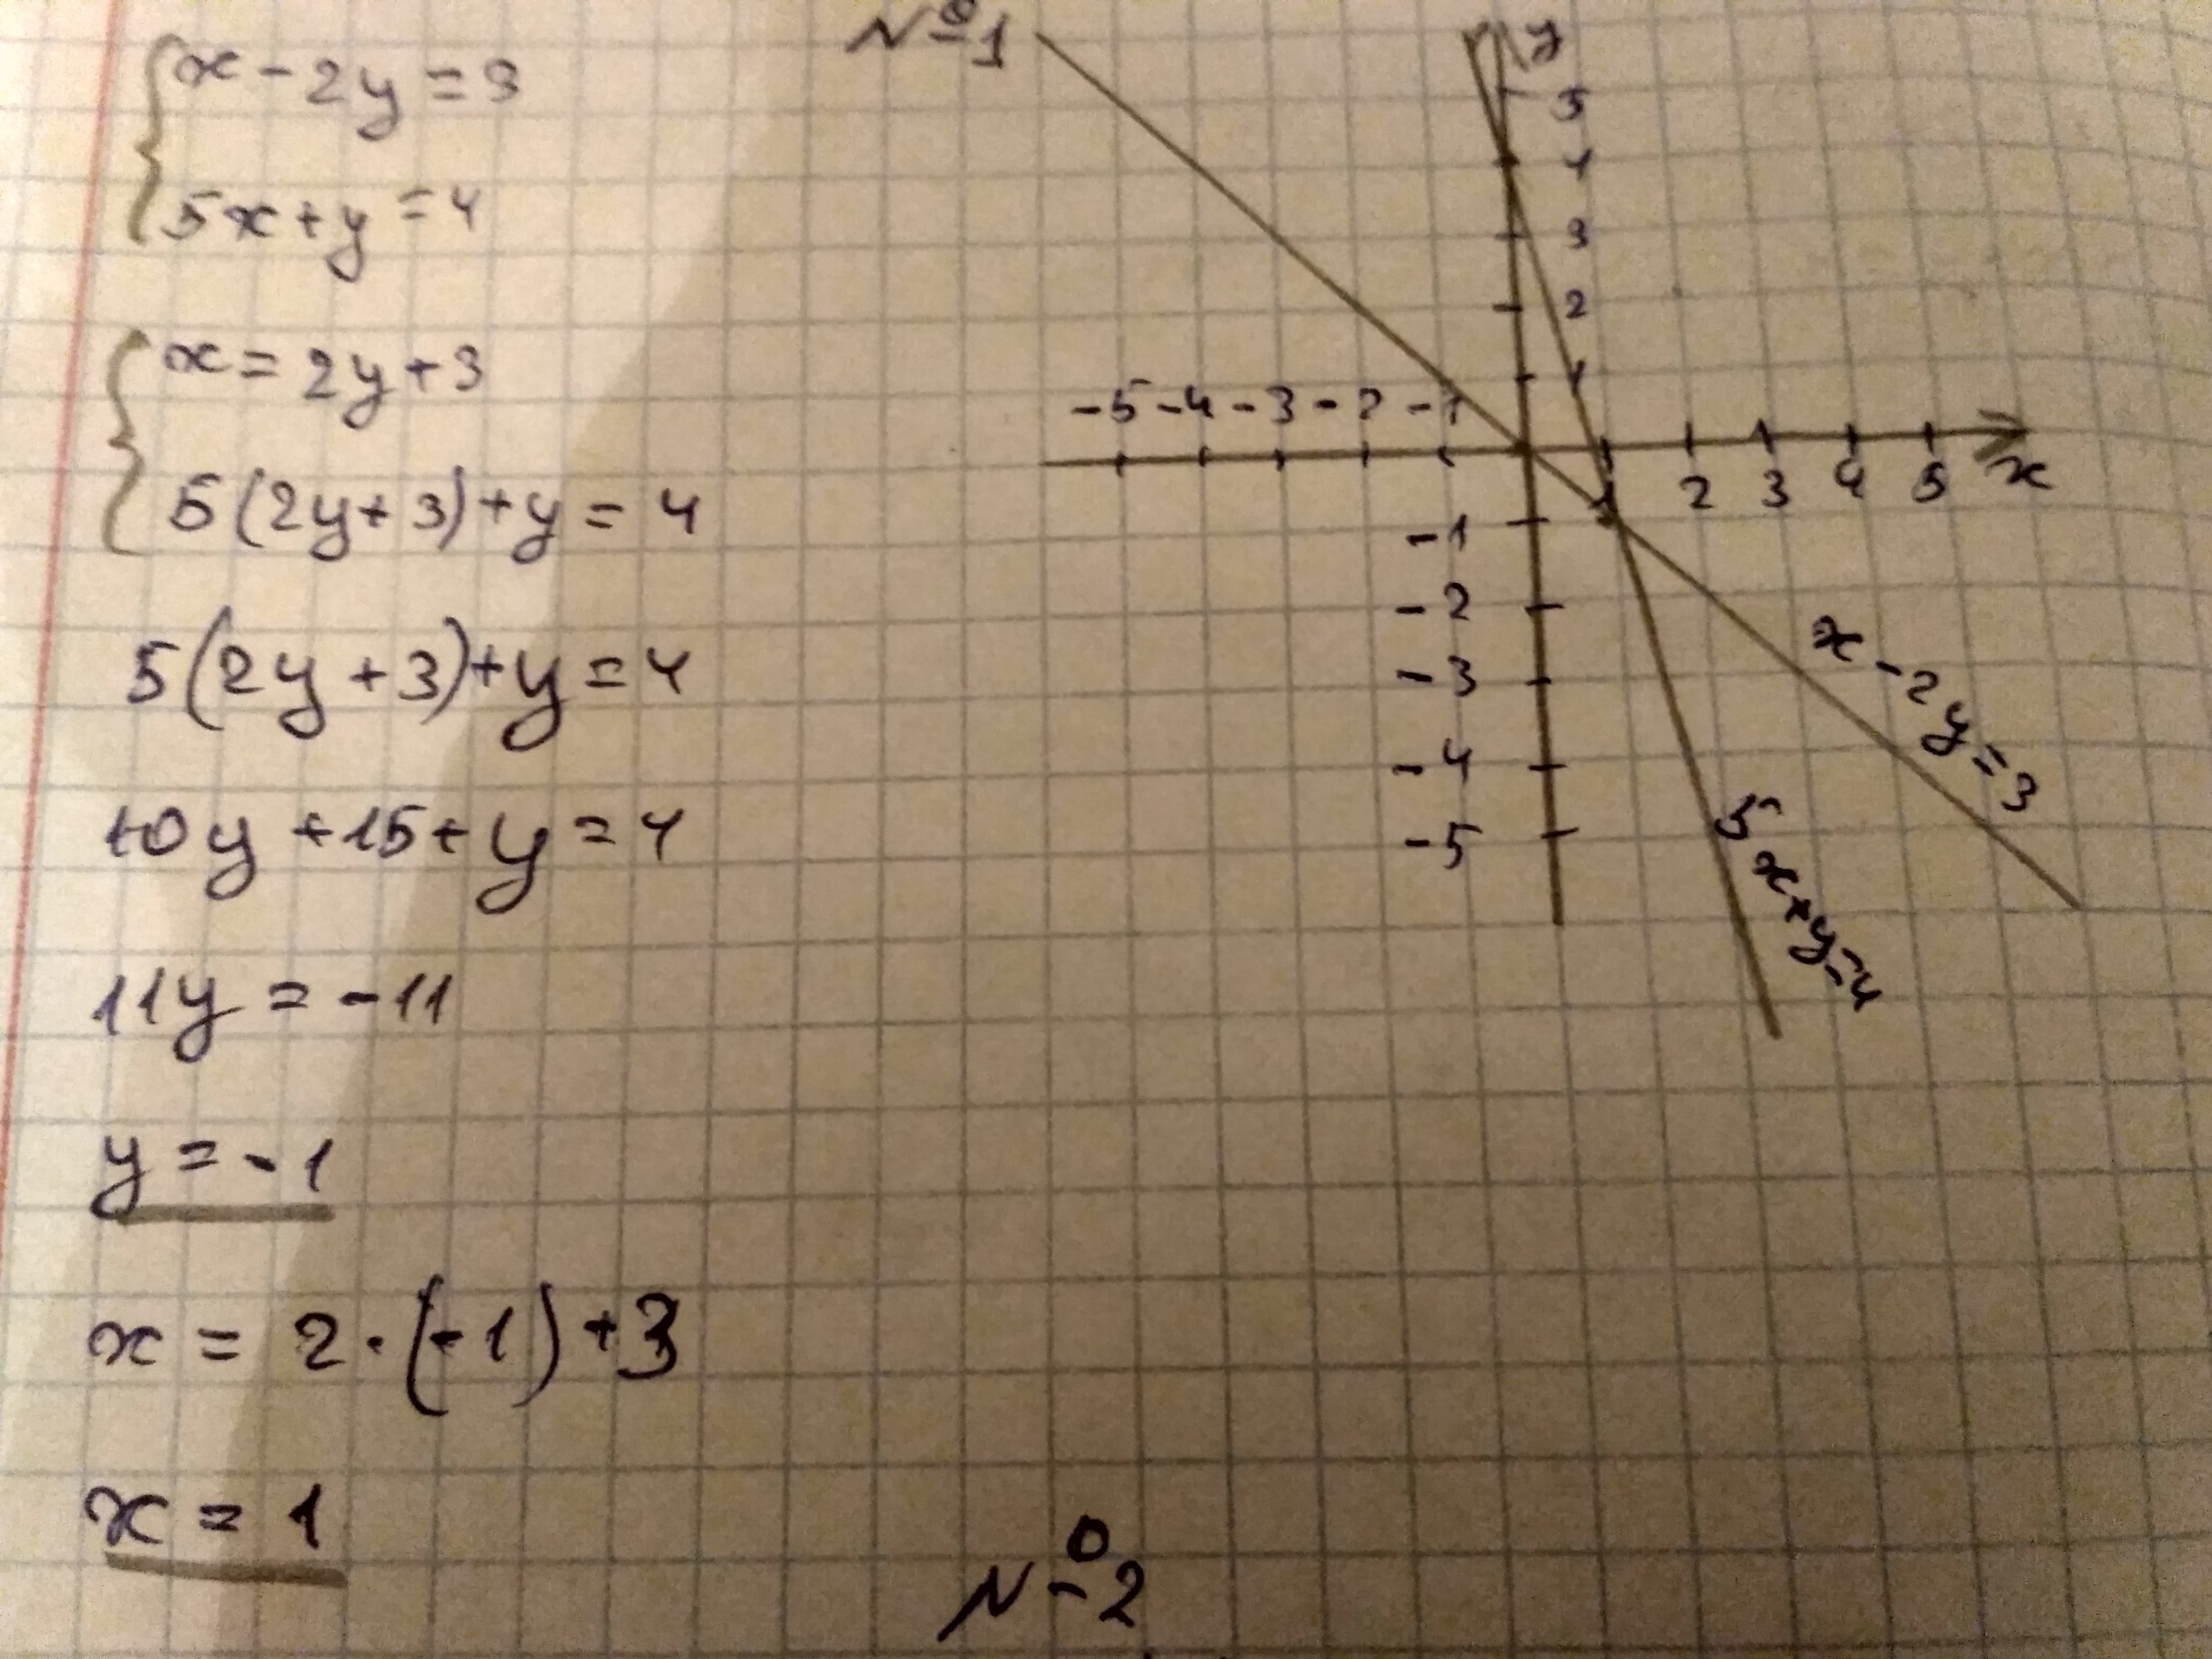 №1
x - 2y = 3
5x + y = 4
x = 2y + 3
5(2y + 3) + y = 4
5(2y + 3) + y = 4
10y + 15 + y = 4
11y = -11
y = -1
x = 2 · (-1) + 3
x = 1
y
5
4
3
2
1
-5 -4 -3 -2 -1
1 2 3 4 5 x
-1
-2
-3
-4
-5
x - 2y = 3
5x + y = 4
№2